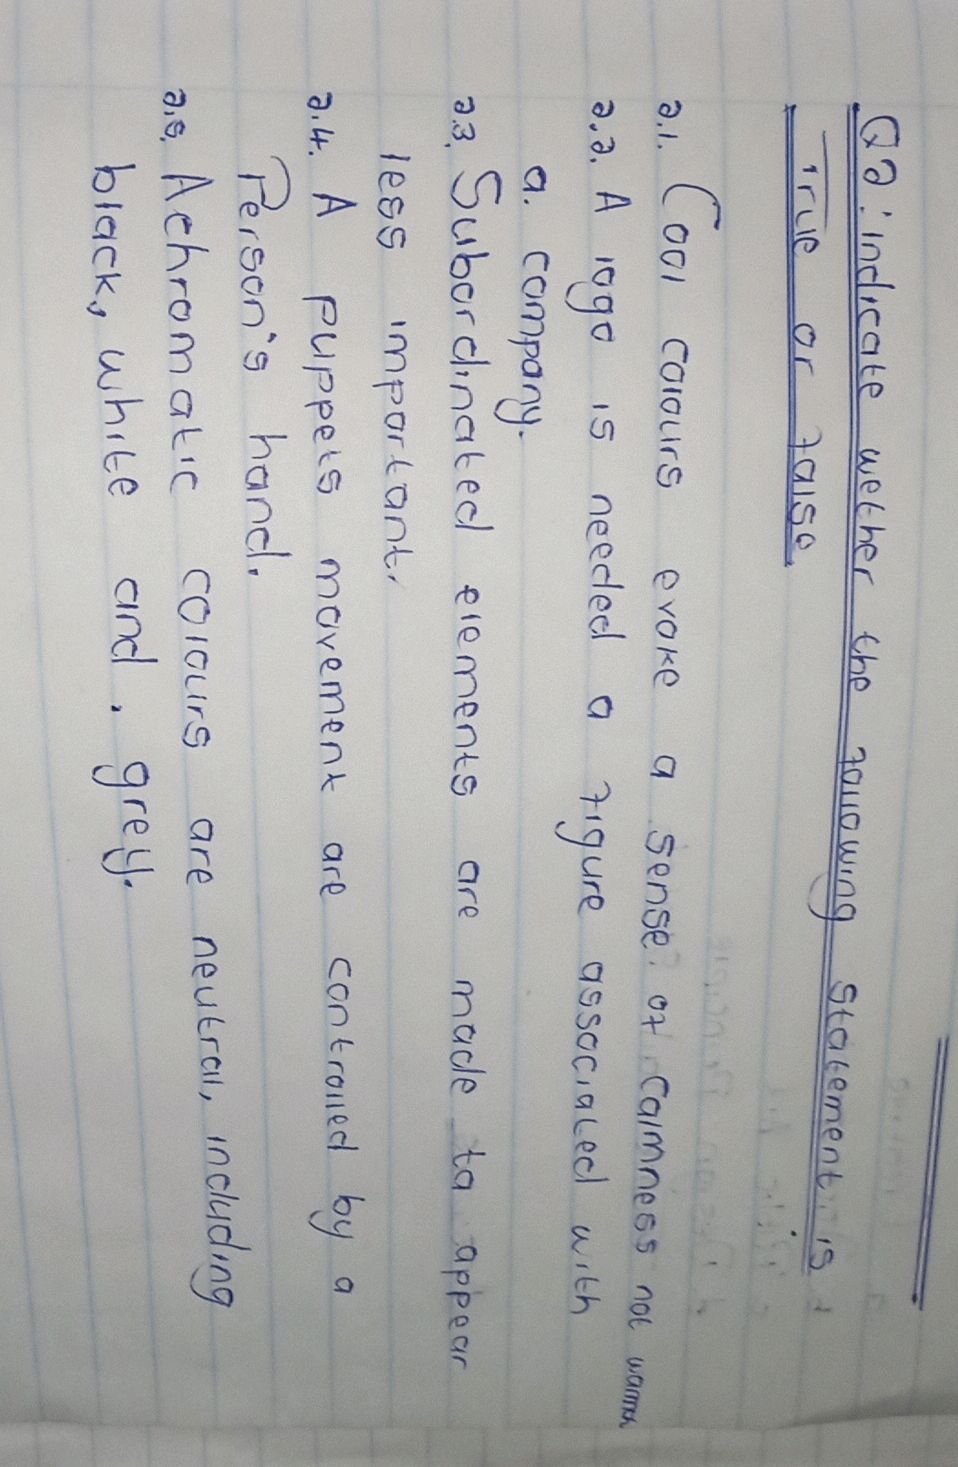 Q2: indicate wether the following statement is
True or false
2.1. Cool colours evoke a sense of calmness not warmth
2.2. A logo is needed a figure associated with
a. company.
2.3. Subordinated elements are made to appear
less important.
2.4. A puppets movement are controlled by a
Person's hand.
2.5. Achromatic colours are neutral, including
black, white and. grey.